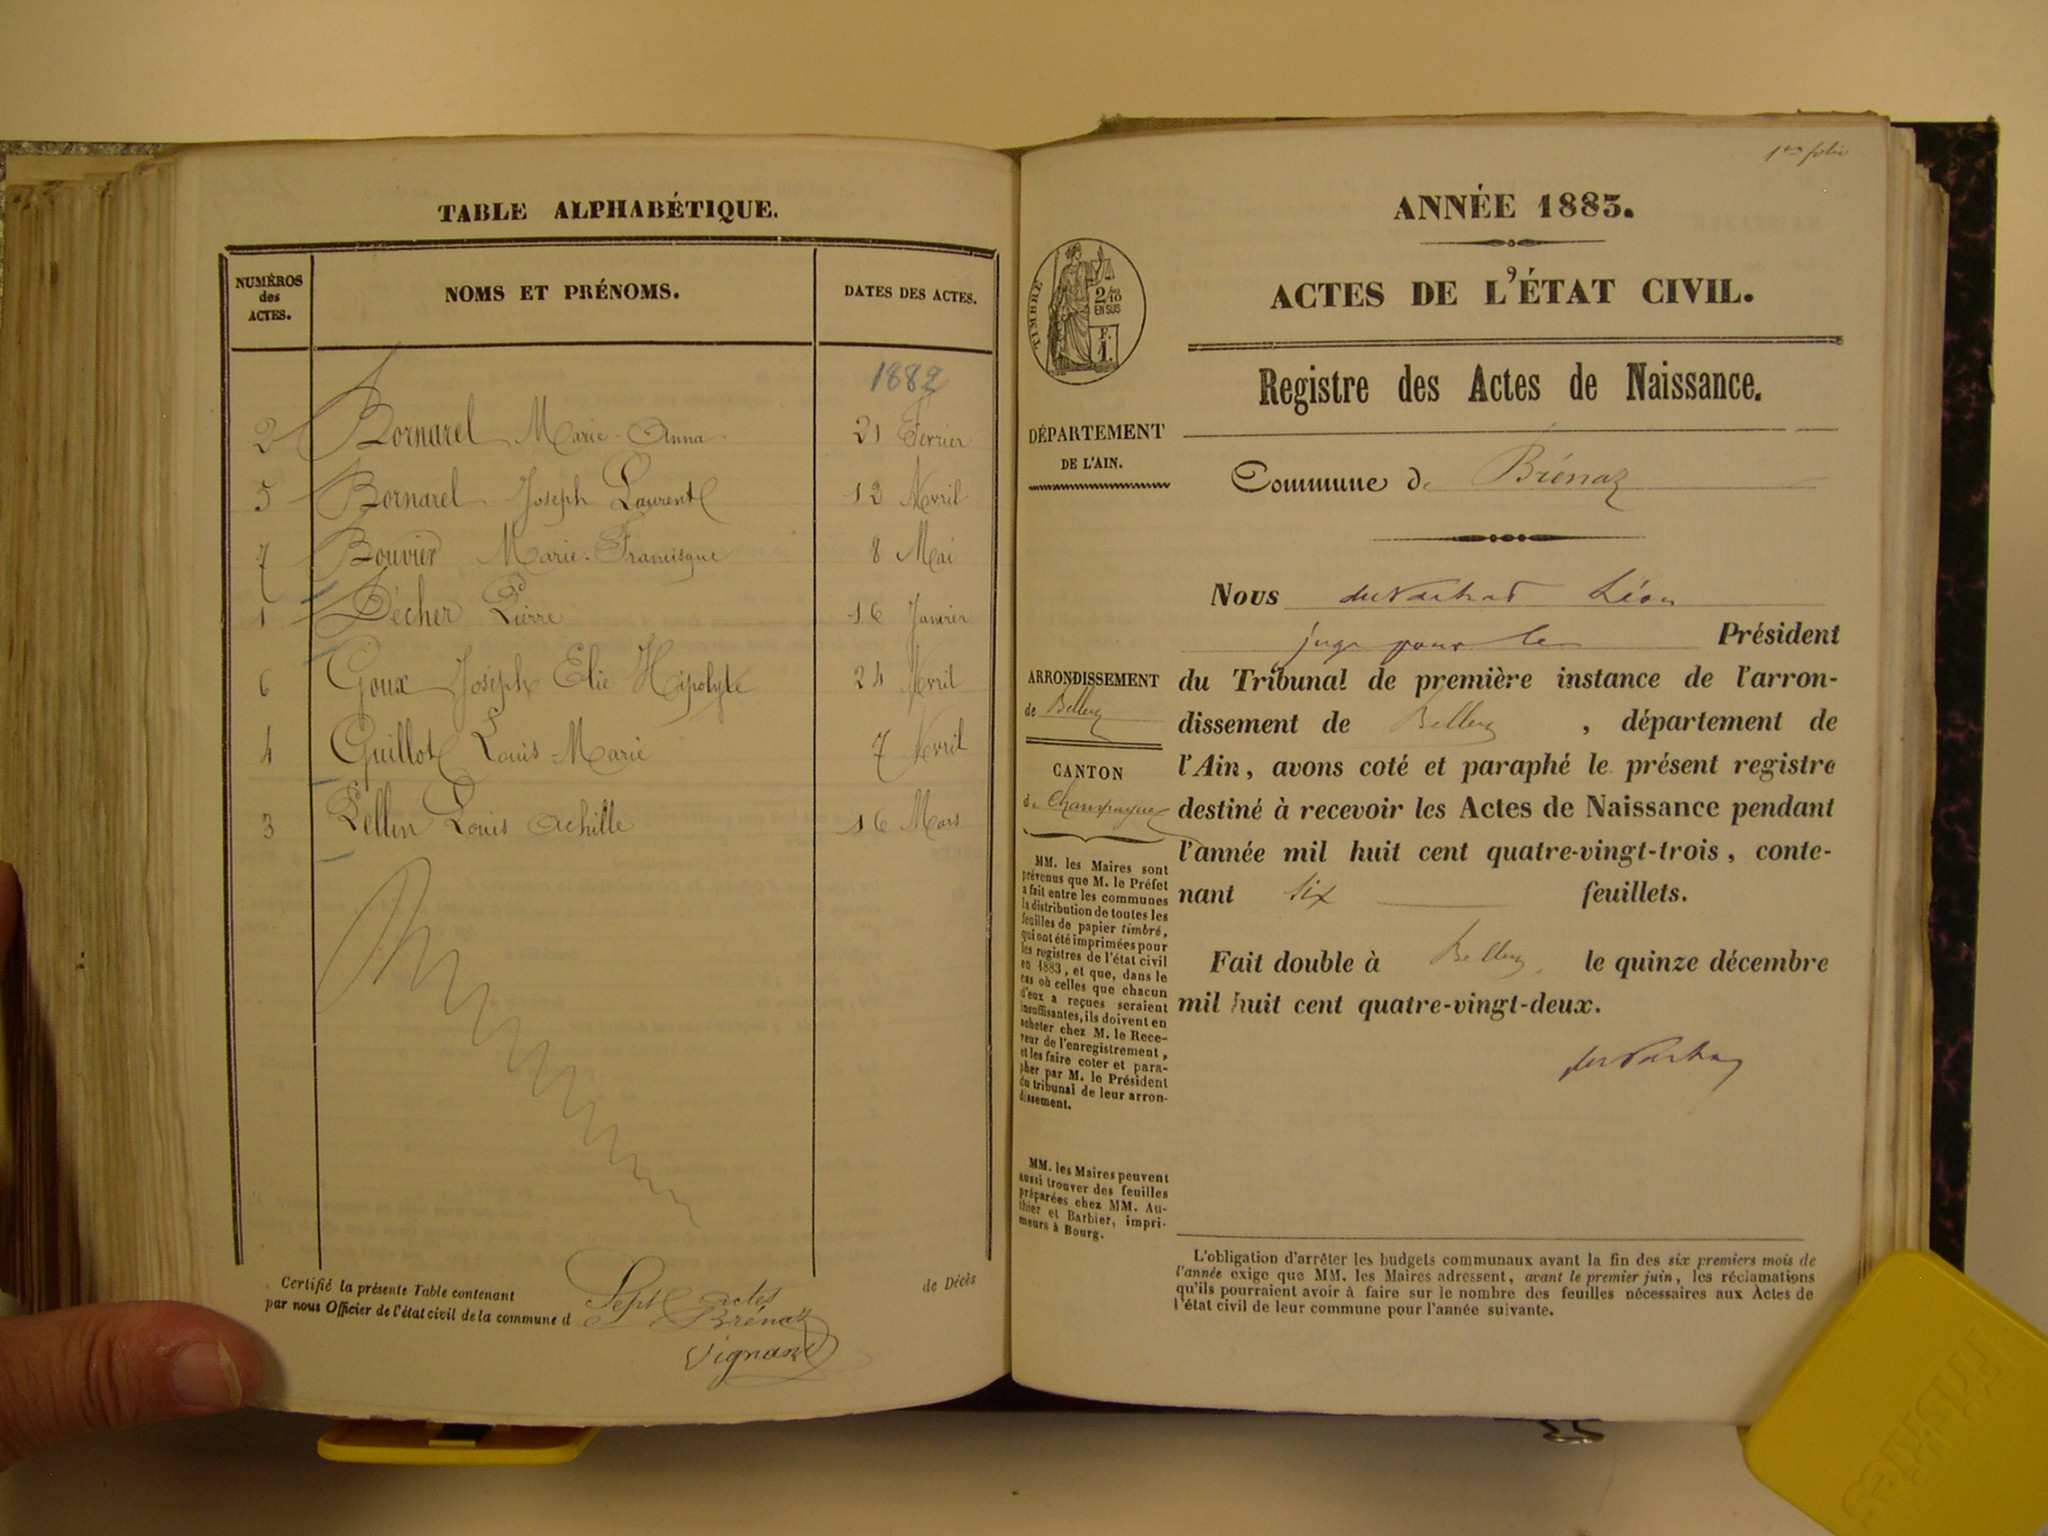 TABLE ALPHABÉTIQUE.
NUMÉROS
des
ACTES.
NOMS ET PRÉNOMS.
DATES DES ACTES.
1882
2 Bornarel Marie-Anna 21 Fevrier
5 Bornarel Joseph Laurent 12 Avril
7 Bouvier Marie-Francisque 8 Mai
1 Décher Pierre 16 Janvier
6 Goux Joseph Elie Hipolyte 24 Avril
4 Guillot Louis-Marie 7 Avril
3 Louis Achille 16 Mars
Certifié la présente Table contenant Sept actes de Décès
par nous Officier de l'état civil de la commune d Brénaz
Vignand
1er folio
ANNÉE 1883.
ACTES DE L'ÉTAT CIVIL.
TIMBRE
2/10
EN SUS
F.
1.
Registre des Actes de Naissance.
DÉPARTEMENT
DE L'AIN.
Commune de Brénaz
Nous Léon
juge pour le Président
ARRONDISSEMENT
de Belley
CANTON
de Champagne
du Tribunal de première instance de l'arron-
dissement de Belley, département de
l'Ain, avons coté et paraphé le présent registre
destiné à recevoir les Actes de Naissance pendant
l'année mil huit cent quatre-vingt-trois, conte-
nant six feuillets.
Fait double à Belley, le quinze décembre
mil huit cent quatre-vingt-deux.
MM. les Maires sont
prévenus que M. le Préfet
a fait entre les communes
la distribution de toutes les
feuilles de papier timbré,
qui ont été imprimées pour
les registres de l'état civil
en 1883, et que, dans le
cas où celles que chacun
d'eux a reçues seraient
insuffisantes, ils doivent en
acheter chez M. le Rece-
veur de l'enregistrement,
et les faire coter et para-
pher par M. le Président
du tribunal de leur arron-
dissement.
MM. les Maires peuvent
aussi trouver des feuilles
préparées chez MM. Au-
thier et Barbier, impri-
meurs à Bourg.
L'obligation d'arrêter les budgets communaux avant la fin des six premiers mois de
l'année exige que MM. les Maires adressent, avant le premier juin, les réclamations
qu'ils pourraient avoir à faire sur le nombre des feuilles nécessaires aux Actes de
l'état civil de leur commune pour l'année suivante.